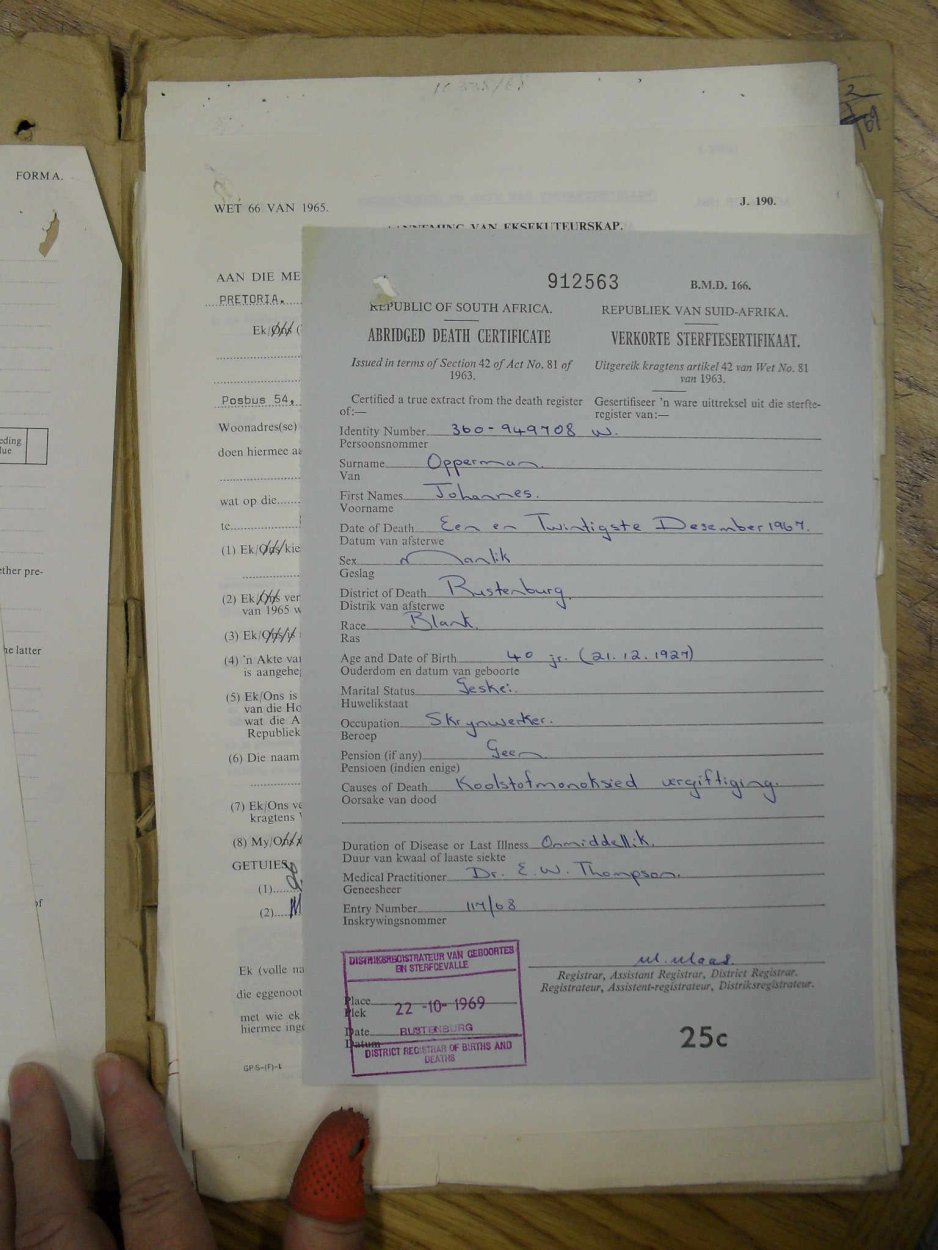 FORM A.
eding
lue
ther pre-
he latter
of
WET 66 VAN 1965.
J. 190.
AANNEMING VAN EKSEKUTEURSKAP.
AAN DIE ME
PRETORIA.
Ek/Ons (
Posbus 54,
Woonadres(se)
doen hiermee aa
wat op die
te
(1) Ek/Ons kie
(2) Ek/Ons ver
van 1965 w
(3) Ek/Ons is
(4) 'n Akte var
is aangehe
(5) Ek/Ons is
van die Ho
wat die A
Republiek
(6) Die naam
(7) Ek/Ons ve
kragtens
(8) My/Ons
GETUIES
(1)
(2)
Ek (volle na
die eggenoot
met wie ek
hiermee inge
G.P.-S-(F)-L
912563
B.M.D. 166.
REPUBLIC OF SOUTH AFRICA.
REPUBLIEK VAN SUID-AFRIKA.
ABRIDGED DEATH CERTIFICATE
VERKORTE STERFTESERTIFIKAAT.
Issued in terms of Section 42 of Act No. 81 of
1963.
Uitgereik kragtens artikel 42 van Wet No. 81
van 1963.
Certified a true extract from the death register
of:—
Gesertifiseer 'n ware uittreksel uit die sterfte-
register van:—
Identity Number 360-949708 W.
Persoonsnommer
Surname Opperman.
Van
First Names Johannes.
Voorname
Date of Death Een en Twintigste Desember 1967.
Datum van afsterwe
Sex Manlik
Geslag
District of Death Rustenburg.
Distrik van afsterwe
Race Blank.
Ras
Age and Date of Birth 40 jr. (21.12.1927)
Ouderdom en datum van geboorte
Marital Status Geskei.
Huwelikstaat
Occupation Skrynwerker.
Beroep
Pension (if any) Geen
Pensioen (indien enige)
Causes of Death Koolstofmonoksied vergiftiging.
Oorsake van dood
Duration of Disease or Last Illness Onmiddellik.
Duur van kwaal of laaste siekte
Medical Practitioner Dr. E. W. Thompson.
Geneesheer
Entry Number 117/68
Inskrywingsnommer
DISTRIKSREGISTRATEUR VAN GEBOORTES
EN STERFGEVALLE
Place
Plek
22 -10- 1969
Date RUSTENBURG
Datum
DISTRICT REGISTRAR OF BIRTHS AND
DEATHS
M. Maas.
Registrar, Assistant Registrar, District Registrar.
Registrateur, Assistent-registrateur, Distriksregistrateur.
25c